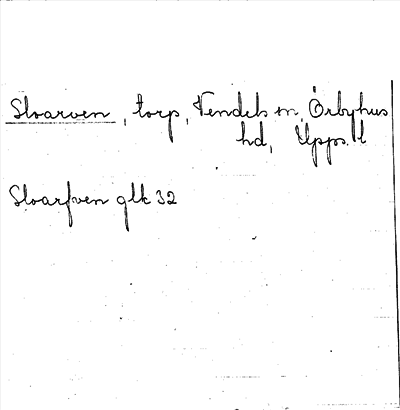 Skarven, torp, Vendels sn, Örbyhus
hd, Upps. l
Skarfven glk 32